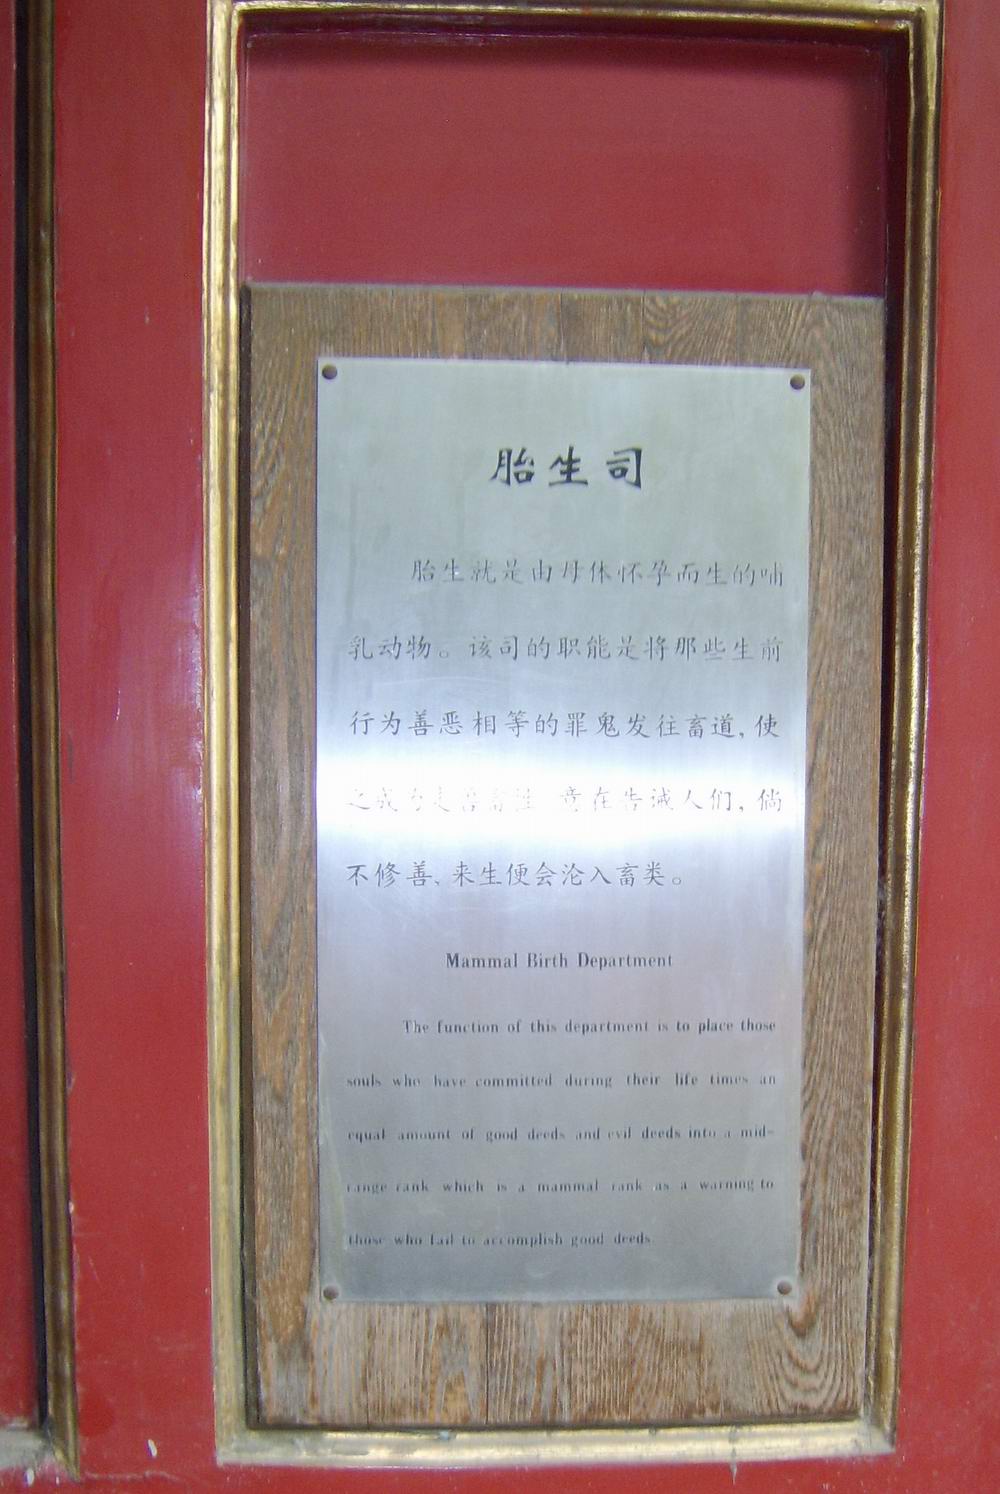 胎生司
胎生就是由母体怀孕而生的哺
乳动物。该司的职能是将那些生前
行为善恶相等的罪鬼发往畜道，使
之成为走兽畜牲 意在告诫人们，倘
不修善、来生便会沦入畜类。
Mammal Birth Department
The function of this department is to place those
souls who have committed during their life times an
equal amount of good deeds and evil deeds into a mid-
range rank which is a mammal rank as a warning to
those who fail to accomplish good deeds.